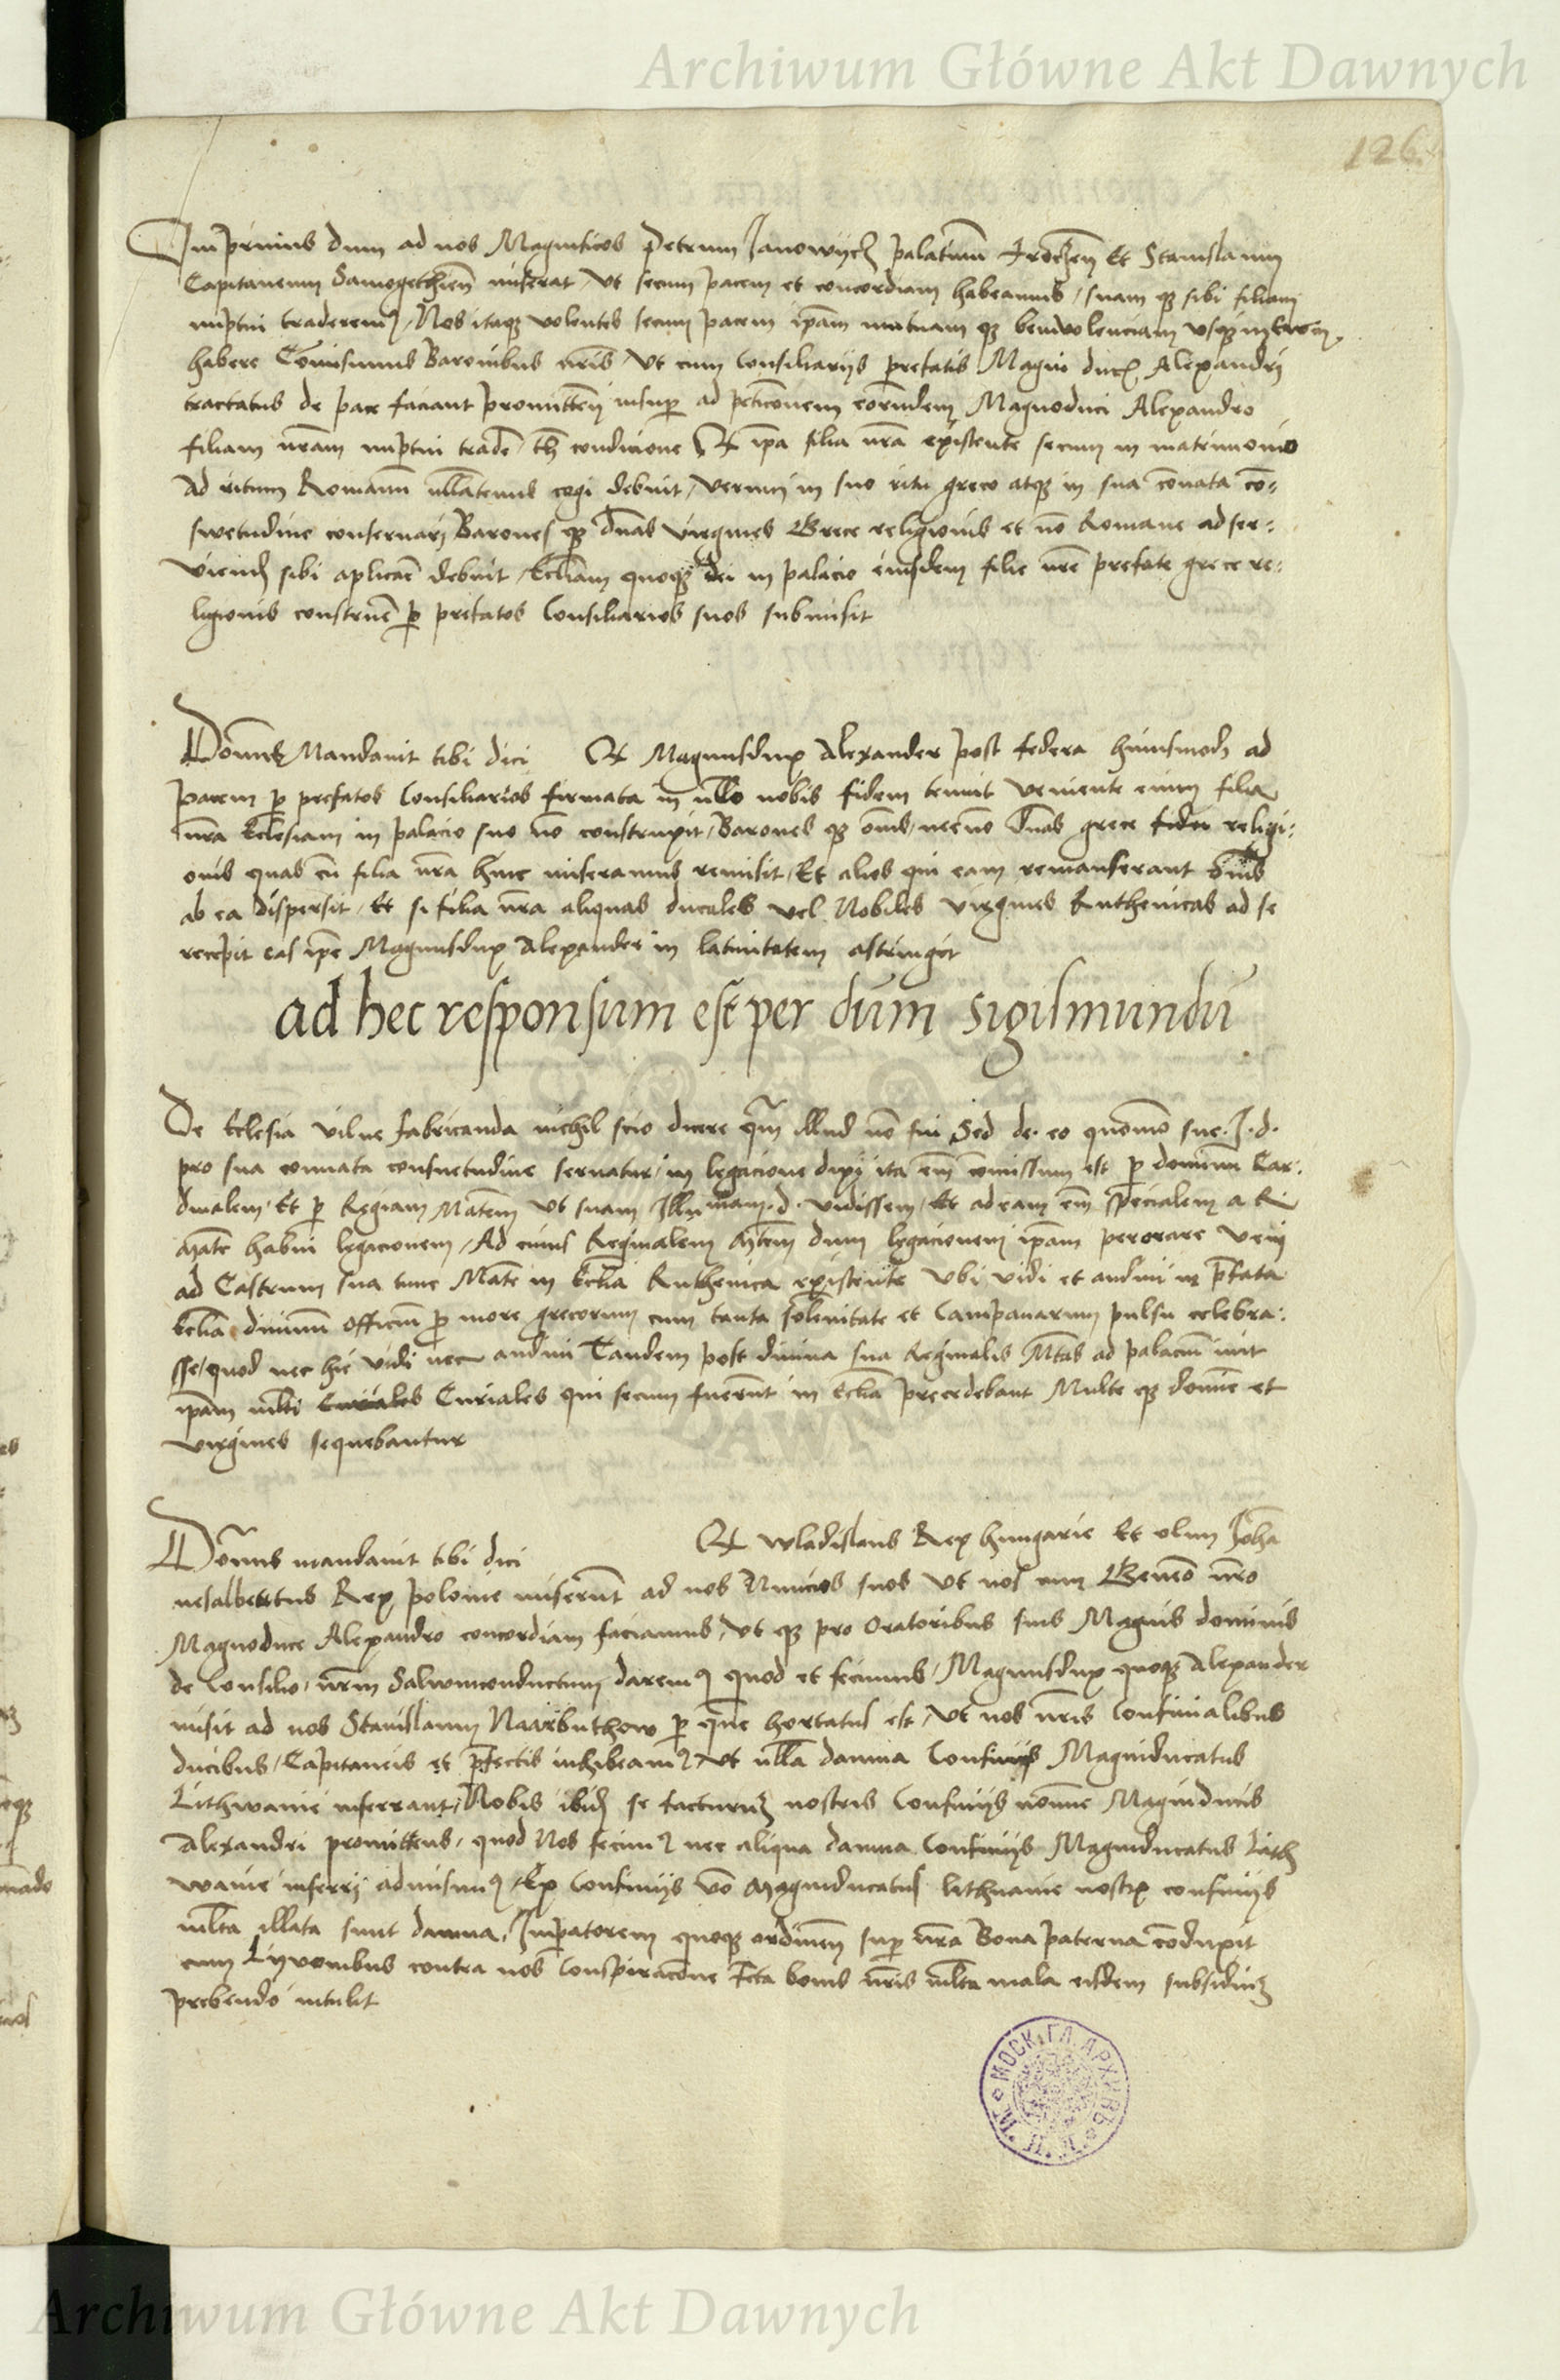 Archiwum Główne Akt Dawnych
126
Inprimis dum ad nos Magnificos Petrum Janowycz palatinū Trocēn Et Stanislaum
Capitaneum Samogethien̄ miserat, Ut secum pacem et concordiam habeamus, suam qz sibi filiam
nuptui traderemꝰ, Nos itaqz volentes secum pacem ip̄am mutuam qz beniuolenciam
habere Cōmisimus Baronibus nr̄is Ut cum Consiliarijs prefatis Magni ducis Alexandri
tractatus de pace faciant promitten̄ insuꝑ ad peticōnem eorundem Magnoduci Alexandro
filiam nr̄am nuptui tradē, condicione Qz ip̄a filia nr̄a existente secum in matrimonio
Ad ritum Romanū ull̄atenus cogi debuit, Verum in suo ritu greco atqz in sua cōnata cō-
swetudine conseruari Barones qz dn̄as virgines Grece religionis et nō Romane adser-
viend sibi aplicar̄e debuit, Eccl̄iam quoqz dei in palacio eiusdem filie nr̄e prefate grece re-
ligionis construer̄e ꝑ prefatos Consiliarios suos submisit
Domīnꝰ Mandauit tibi dici Qz Magnusdux Alexander post federa huiusmodi ad
pacem ꝑ prefatos Consiliarios firmata in nullo nobis fidem tenuit Veniente enim filia
nr̄a Ecclesiam in palacio suo nō construxit, Barones qz om̄s, necnō dn̄as grece fidei religi-
onis quas cū filia nr̄a huic miseramus remisit, Et alios qui eam remanserant om̄s
ab ea dispersit, Et si filia nr̄a aliquas ducales vel Nobiles virgines Ruthenicas ad se
recepit eas ip̄e Magnusdux Alexander in latinitatem astringit
ad hec responsum est per dūm Sigismundū
De Eclesia vilne fabricanda nichil scio dicere illud nō fui Sed de eo quomō sue. J. d.
pro sua connata consuetudine seruatur, in legacione dixi ita em̄ cōmissum est ꝑ dominū Car-
dinalem, Et ꝑ Regiam Mat̄em Ut suam Illumam. d. vidissem, Et ad eam em̄ specialem a R
Mat̄e habui legacionem, Ad cuius Reginalem Mt̄em dum legacionem ip̄am perorare veni
ad Castrum sua tunc Mat̄e in Eccl̄ia Ruthenica existente Ubi vidi et audiui in pr̄fata
Eccl̄ia diuinū officiū ꝑ more grecorum cum tanta solenitate et Campanarum pulsu celebra-
sse, quod nec hic vidi nec audiui Tandem post diuina sua Reginalis Mt̄as ad palaciū iuit
ip̄am ml̄ti Curiales Curiales qui secum fuerunt in Eccl̄ia precedebant Multe qz domine et
virgines sequebantur
Dom̄nus mandauit tibi dici Qz Wladislaus Rex hungarie Et olim Joha
nesalbertus Rex polonie miserunt ad nos Nuncios suos Ut nos cum Genero nr̄o
Magnoduce Alexandro concordiam faciamus, Ut qz pro Oratoribus suis Magnis dominis
de Consilio, nr̄m Saluumconductum daremꝰ quod et fecimus, Magnusdux quoqz Alexander
misit ad nos Stanislaum Narbuthow ꝑ quē hortatus est, Ut nos nr̄is Confinalibus
ducibus, Capitaneis et pr̄fectis inhibeamꝰ Ut ull̄a damna Confinijs Magniducatus
Lithwanie inferrant, Nobis se facturum nostris Confinijs nomine Magniducis
Alexandri promittens, quod Nos fecimꝰ nec aliqua damna Confinijs Magniducatus Lith
wanie inferri admisimꝰ, Ex Confinijs vō Magniducatus lithuanie nostris confinijs
ml̄ta illata sunt damna, Imꝑatorem quoqz ordinen̄ suꝑ nr̄a Bona paterna cōduxit
cum Lyuonibus contra nos Conspiracōne fc̄ta bonis nr̄is ml̄ta mala eisdem subsidium
prebendo intulit
МОСК. ГЛ. АРХИВЪ М. И. Д.
Archiwum Główne Akt Dawnych